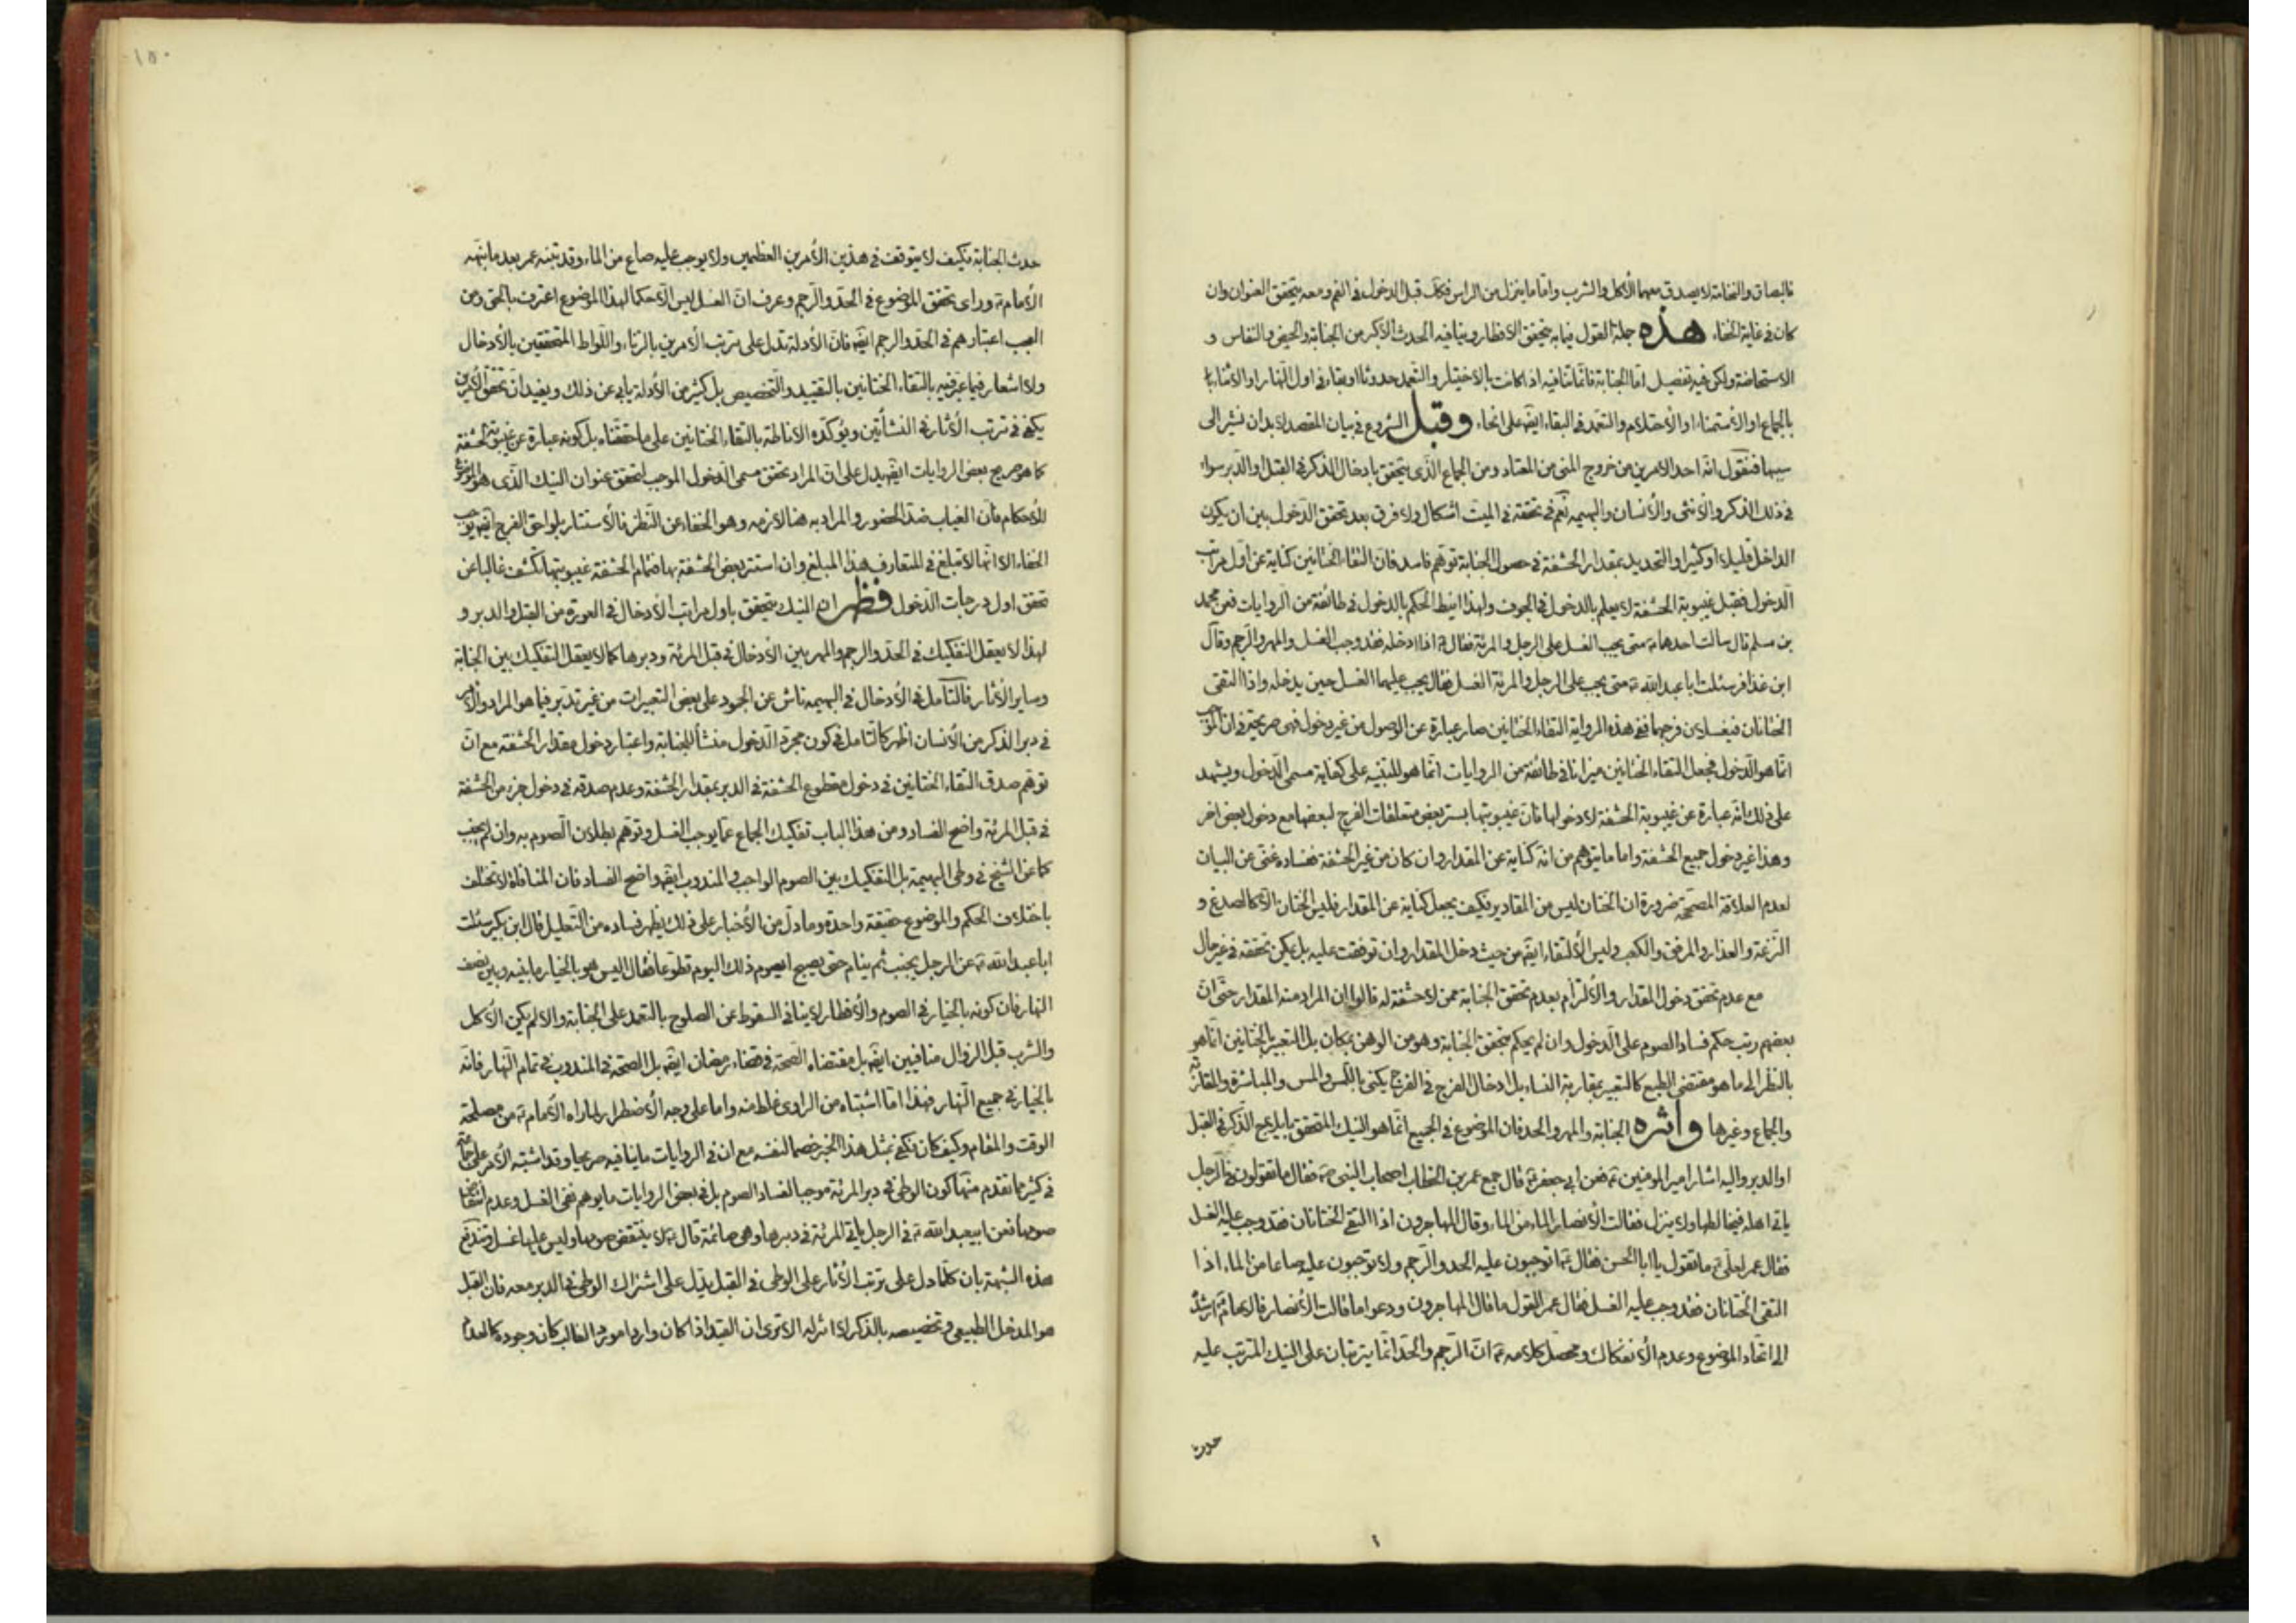 فالبصاق والنخامة لا يصدق معهما الأكل والشرب واما ما ينزل من الراس فكك قبل الدخول في الفم ومعه يتحقق العنوان وان
كان في غاية الخفاء هذه جملة القول فيما به يتحقق الافطار وينافيه الحدث الأكبر من الجنابة والحيض والنفاس و
الاستحاضة ولكن فيه تفصيل امّا الجنابة فانّما تنافيه اذا كانت بالاختيار والتعمد حدوثا او بقاء في اول النهار او الأثناء
بالجماع او الأستمناء او الأحتلام والتعمد في البقاء ايضا على انحاء وقبل الشروع في بيان المقصد لا بد ان نشير الى
سببها فنقول انّه احد الامرين من خروج المني من المعتاد ومن الجماع الذّى يتحقق بادخال الذكر في القبل او الدبر سواء
في ذلك الذكر والأنثى والأنسان والبهيمه نعم في تحققه في الميت اشكال ولا فرق بعد تحقق الدخول بين ان يكون
الداخل قليلا او كثيرا والتحديد بمقدار الحشفة في حصول الجنابة توهم فاسد فان التقاء الختانين كناية عن اول مراتب
الدخول فقبل غيبوبة الحشفة لا يعلم بالدخول في الجوف ولهذا انيط الحكم بالدخول في طائفة من الروايات فعن محمد
بن مسلم قال سالت احدهما ع متى يجب الغسل على الرجل والمرئة فقال ع اذا ادخله فقد وجب الغسل والمهر والرجم وقال
ابن عذافر سئلت ابا عبد الله ع متى يجب على الرجل والمرئة الغسل فقال يجب عليهما الغسل حين يدخله واذا التقى
الختانان فيغسلان فرجهما ففي هذه الرواية التقاء الختانين صار عبارة عن الوصول من غير دخول فهى صريحة في ان الموجب
انّما هو الدخول فجعل التقاء الختانين ميزانا في طائفة من الروايات انّما هو للتنبيه على كفاية مسمى الدخول ويشهد
على ذلك انّه عبارة عن غيبوبة الحشفة لا دخولها فان غيبوبتها بستر بعض متعلقات الفرج لبعضها مع دخول بعض اخر
وهذا غير دخول جميع الحشفة واما ما يتوهم من انّه كناية عن المقدار وان كان من غير الحشفة ففساده غنى عن البيان
لعدم العلاقة المصححة ضرورة ان الختان ليس من المقادير فكيف يجعل كناية عن المقدار فليس الختان الّا كالصدغ و
النزعة والعذار والمرفق والكعب وليس الألتقاء ايضا من حيث دخل المقدار وان توقفت عليه بل يمكن تحققه في غير حال
مع عدم تحقق دخول المقدار والألتزام بعدم تحقق الجنابة ممن لا حشفة له قالوا ان المراد منه المقدار حتى انّ
بعضهم رتب حكم فساد الصوم على الدخول وان لم يحكم بتحقق الجنابة وهو من الوهن بمكان بل التعبير بالختانين انّما هو
بالنظر الى ما هو مقتضى الطبع كالتعبير بمقاربة النساء بل ادخال الفرج في الفرج يكنى باللمس والمس والمباشرة والمقاربة
والجماع وغيرها واثره الجنابة والمهر والحد فان الموضوع في الجميع انّما هو النيك المتحقق بايلاج الذّكر في القبل
او الدبر واليه اشار امير المؤمنين ع فعن ابى جعفر ع قال جمع عمر بن الخطاب اصحاب النبى ص فقال ما تقولون في الرجل
ياتى اهله فيخالطها ولا ينزل فقالت الأنصار الماء من الماء وقال المهاجرون اذا التقى الختانان فقد وجب عليه الغسل
فقال عمر لعلى ع ما تقول يا ابا الحسن فقال ع اتوجبون عليه الحد والرجم ولا توجبون عليه صاعا من الماء اذا
التقى الختانان فقد وجب عليه الغسل فقال عمر القول ما قال المهاجرون ودعوا ما قالت الأنصار فالامام ع ارشد
الى اتحاد الموضوع وعدم الأنفكاك ومحصل كلامه ع انّ الرجم والحد انّما يترتبان على النيك المترتب عليه
حدث
١٥٠
حدث الجنابة فكيف لا يتوقف في هذين الأمرين العظيمين ولا يوجب عليه صاع من الماء وقد تنبه عمر بعد ما نبّهه
الأمام ع وراى تحقق الموضوع في الحد والرجم وعرف انّ الغسل ليس الّا حكما لهذا الموضوع اعترف بالحق ومن
العجب اعتبارهم في الحد والرجم ايضا فانّ الأدلة تدل على ترتب الأمرين بالزناء واللواط المتحققين بالأدخال
ولا اشعار فيما عبر فيه بالتقاء الختانين بالتقييد والتخصيص بل كثير من الأدلة يابى عن ذلك ويفيد انّ تحقق الأمرين
يكفى في ترتب الأثار في النشأتين ويؤكّده الاناطة بالتقاء الختانين على ما حققناه بل كونه عبارة عن غيبوبة الحشفة
كما هو صريح بعض الروايات ايضا يدل على انّ المراد تحقق مسمى الدخول الموجب لتحقق عنوان النيك الذّى هو الموضوع
للأحكام فان الغياب ضد الحضور والمراد به هنا لازمه وهو الخفاء عن النظر فالأستتار بلواحق الفرج ايضا يوجب
الخفاء الا انّها لا تبلغ في المتعارف هذا المبلغ وان استتر بعض الحشفة بها فتمام الحشفة غيبوبتها تكشف غالبا عن
تحقق اول درجات الدخول فظهر ان النيك يتحقق باول مراتب الأدخال في العورة من القبل والدبر و
لهذا لا يعقل التفكيك في الحد والرجم والمهر بين الأدخال في قبل المرئة ودبرها كما لا يعقل التفكيك بين الجنابة
وساير الأثار فالتأمل في الأدخال في البهيمه ناش عن الجمود على بعض التعبيرات من غير تدبر فيما هو المراد والأمر
في دبر الذكر من الأنسان اظهر كالتامل في كون مجرد الدخول منشأ للجنابة واعتبار دخول مقدار الحشفة مع انّ
توهم صدق التقاء الختانين في دخول مقطوع الحشفة في الدبر بمقدار الحشفة وعدم صدقه في دخول جزء من الحشفة
في قبل المرئة واضح الفساد ومن هذا الباب تفكيك الجماع عمّا يوجب الغسل وتوهم بطلان الصوم به وان لم يجنب
كما عن الشيخ في وطى البهيمة بل التفكيك بين الصوم الواجب والمندوب ايضا واضح الفساد فان المنافاة لا تختلف
باختلاف الحكم والموضوع حقيقة واحدة وما دلّ من الأخبار على ذلك يظهر فساده من التعليل قال ابن بكير سئلت
ابا عبد الله ع عن الرجل يجنب ثم ينام حتى يصبح ايصوم ذلك اليوم تطوعا فقال اليس هو بالخيار ما بينه وبين نصف
النهار فان كونه بالخيار في الصوم والأفطار لا ينافى السقوط عن الصلوح بالتعمد على الجنابة والا لم يكن الأكل
والشرب قبل الزوال منافيين ايضا بل مقتضاه الصّحة في قضاء رمضان ايضا بل الصحة في المندوب في تمام النّهار فانّه
بالخيار في جميع النّهار فهذا امّا اشتباه من الراوى غلط منه واما على وجه الأضطرار لما راه الأمام ع من مصلحة
الوقت والمقام وكيف كان فكفى بمثل هذا الخبر خصما لنفسه مع ان في الروايات ما ينافيه صريحا وقد اشتبه الأمر على
في كثير ما تقدم منها كون الوطى في دبر المرئة موجبا لفساد الصوم بل في بعض الروايات ما يوهم نفى الغسل وعدم انتقاض
صومها فعن ابيعبد الله ع في الرجل ياتى المرئة في دبرها وهى صائمة قال ع لا ينتقض صومها وليس عليها غسل وتندفع
هذه الشبهة بان كلّما دل على ترتب الأثار على الوطى في القبل يدّل على اشتراك الوطى في الدبر معه فان القبل
هو المدخل الطبيعى وتخصيصه بالذكر لا اثر له الا ترى ان القيد اذا كان واردا مورد الغالب كان وجوده كالعدم